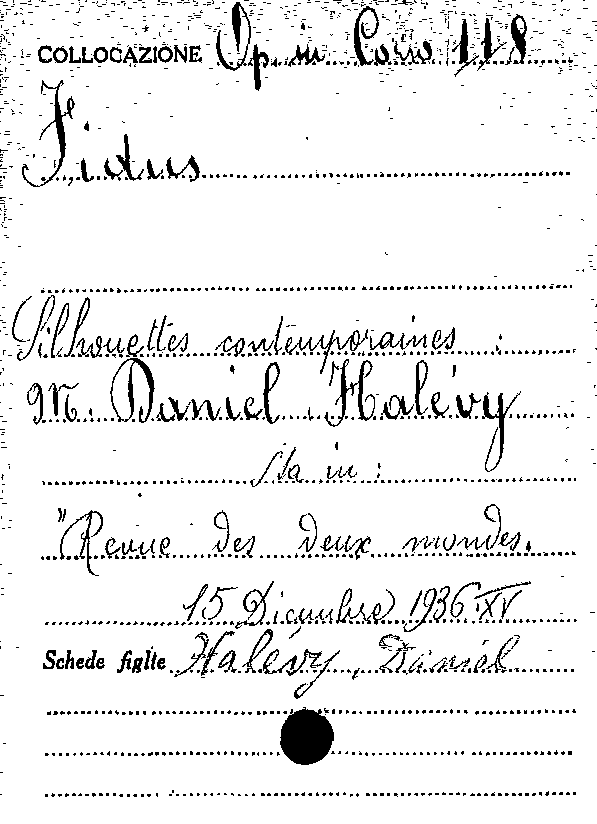 COLLOCAZIONE Op. in Corso 118
Fidus
Silhouettes contemporaines :
M. Daniel Halévy
Sta in :
"Revue des deux mondes.
15 Dicembre 1936 XV
Schede figlie Halévy, Daniel